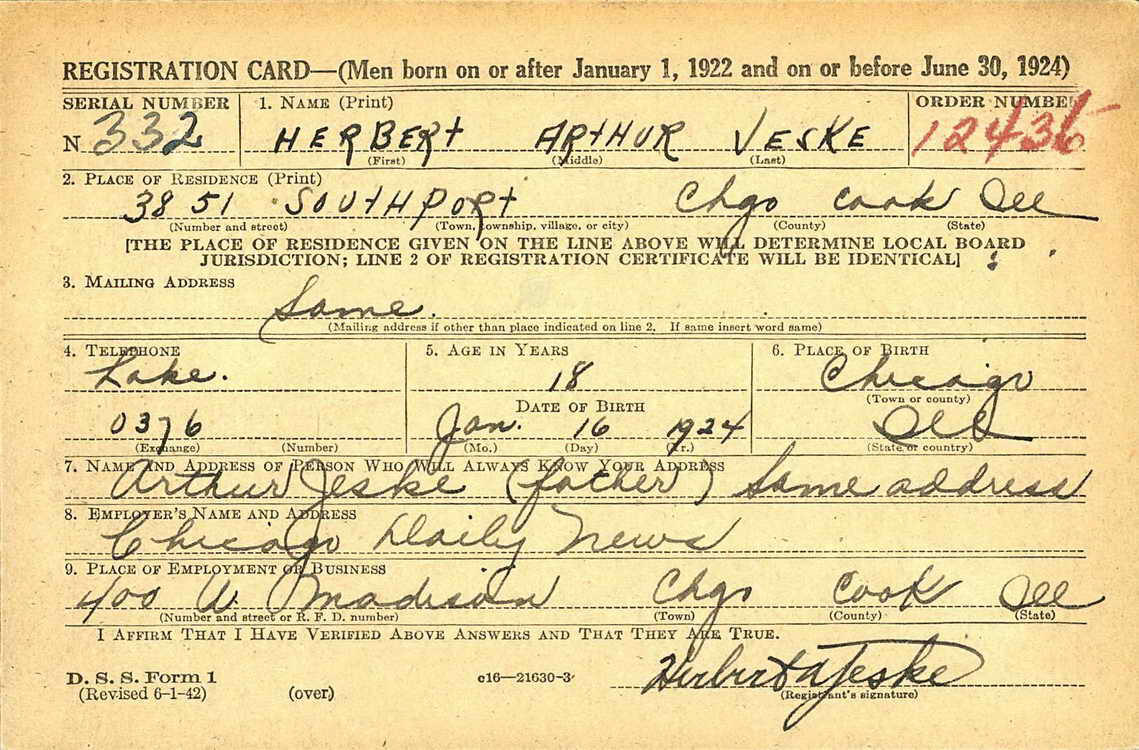 REGISTRATION CARD—(Men born on or after January 1, 1922 and on or before June 30, 1924)
SERIAL NUMBER 1. NAME (Print) ORDER NUMBER
N 332 HERBERt ARtHUR JESKE 12436
(First) (Middle) (Last)
2. PLACE OF RESIDENCE (Print)
3851 SOUtHPORt Chgo Cook Ill
(Number and street) (Town, township, village, or city) (County) (State)
[THE PLACE OF RESIDENCE GIVEN ON THE LINE ABOVE WILL DETERMINE LOCAL BOARD
JURISDICTION; LINE 2 OF REGISTRATION CERTIFICATE WILL BE IDENTICAL]
3. MAILING ADDRESS
Same.
(Mailing address if other than place indicated on line 2. If same insert word same)
4. TELEPHONE 5. AGE IN YEARS 6. PLACE OF BIRTH
Lake. 18 Chicago
(Town or county)
DATE OF BIRTH
0376 Jan. 16 1924 Ill
(Exchange) (Number) (Mo.) (Day) (Yr.) (State or country)
7. NAME AND ADDRESS OF PERSON WHO WILL ALWAYS KNOW YOUR ADDRESS
Arthur Jeske (father) Same address
8. EMPLOYER'S NAME AND ADDRESS
Chicago Daily News
9. PLACE OF EMPLOYMENT OR BUSINESS
400 W. Madison Chgo Cook Ill
(Number and street or R. F. D. number) (Town) (County) (State)
I AFFIRM THAT I HAVE VERIFIED ABOVE ANSWERS AND THAT THEY ARE TRUE.
Herbert A Jeske
D. S. S. Form 1 c16—21630-3
(Revised 6-1-42) (over) (Registrant's signature)